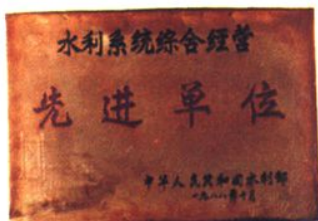 水利系统综合经营
先进单位
中华人民共和国水利部
一九八八年十月